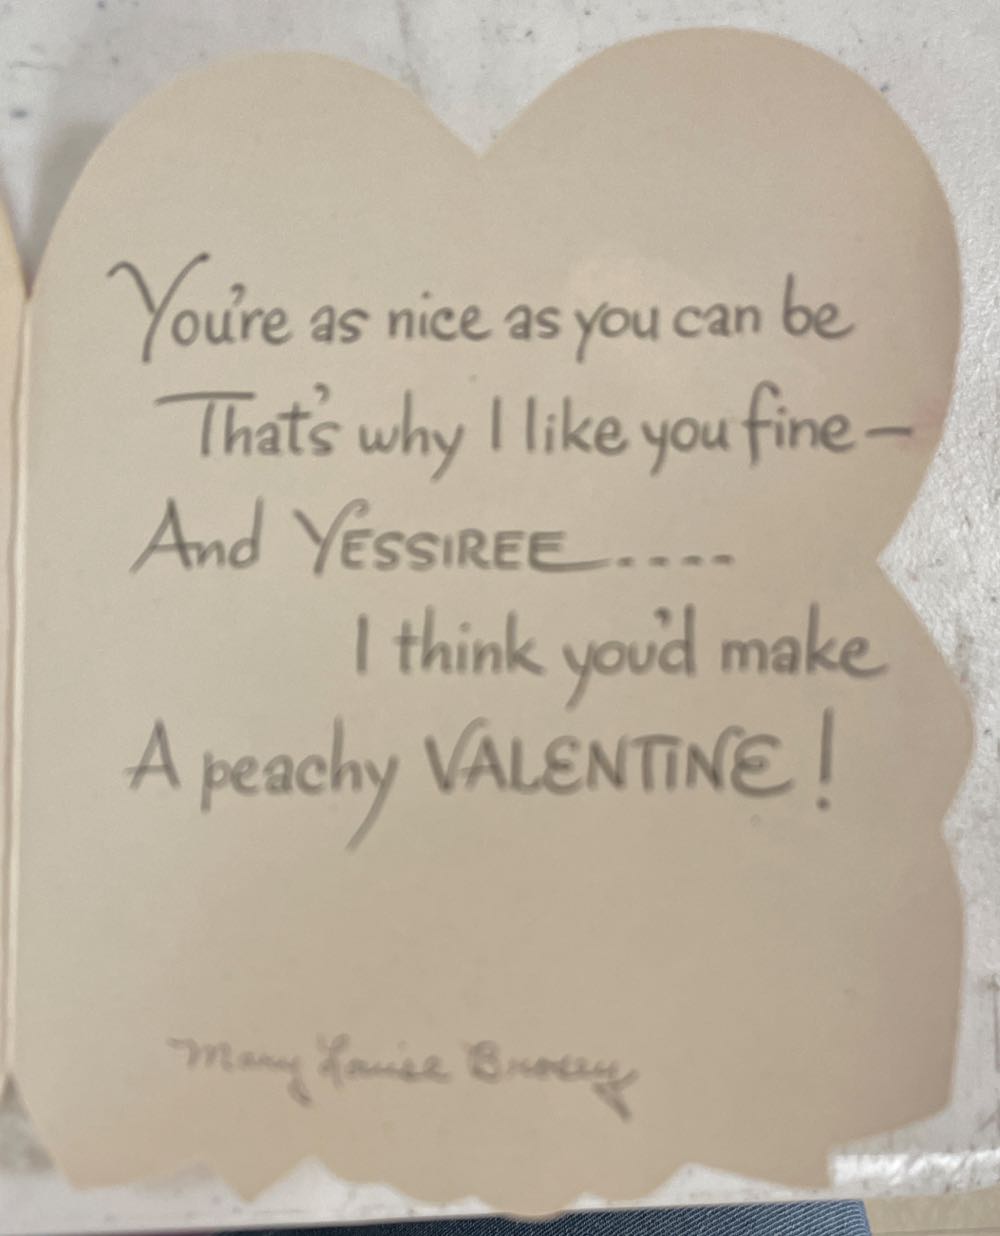 You're as nice as you can be
That's why I like you fine—
And YESSIREE....
I think you'd make
A peachy VALENTINE!
Mary Louise